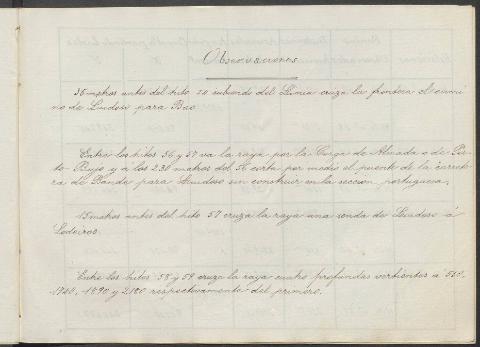 Observaciones
35 metros antes del hito 50 subiendo del Limia cruza la frontera el cami-
no de Lindoso para Bao.
Entre los hitos 56 y 57 va la raya por la Corga de Abuada o de Por-
to Bujo y á los 230 metros del 56 corta por medio el puente de la carrete-
ra de Bande para Lindoso sin construir en la seccion portuguesa.
15 metros antes del hito 57 cruza la raya una senda de Lindoso á
Ludeiros.
Entre los hitos 58 y 59 cruza la raya cuatro profundas vertientes a 510,
1890 y 2180 respectivamente del primero.